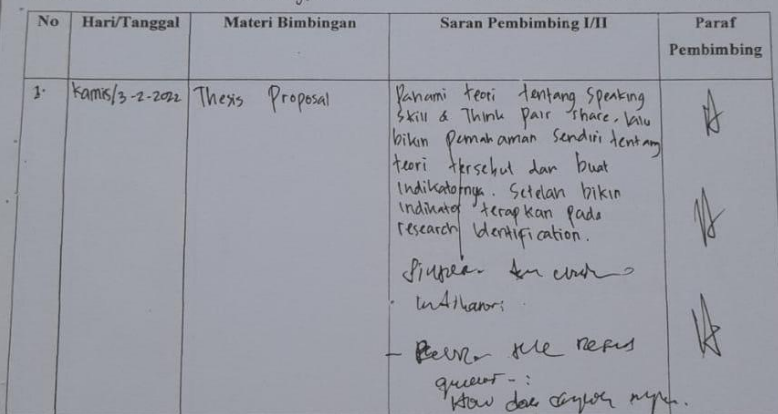 No Hari/Tanggal Materi Bimbingan Saran Pembimbing I/II Paraf
Pembimbing
1. Kamis/3-2-2022 Thesis Proposal Pahami teori tentang Speaking
Skill & Think Pair Share, lalu
bikin Pemahaman Sendiri tentang
teori tersebut dan buat
Indikatornya. Setelah bikin
Indikator terapkan pada
research Identification.
How does